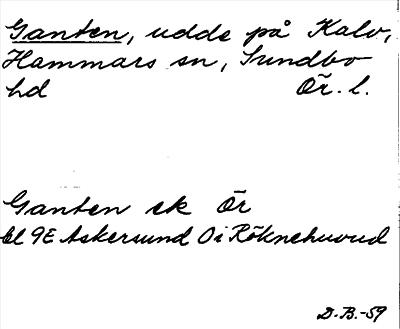 Ganten, udde på Kalv,
Hammars sn, Sundbo
hd Ör. l.
Ganten ek Ör
bl 9E Askersund Oi Röknehuvud
D.B.-59